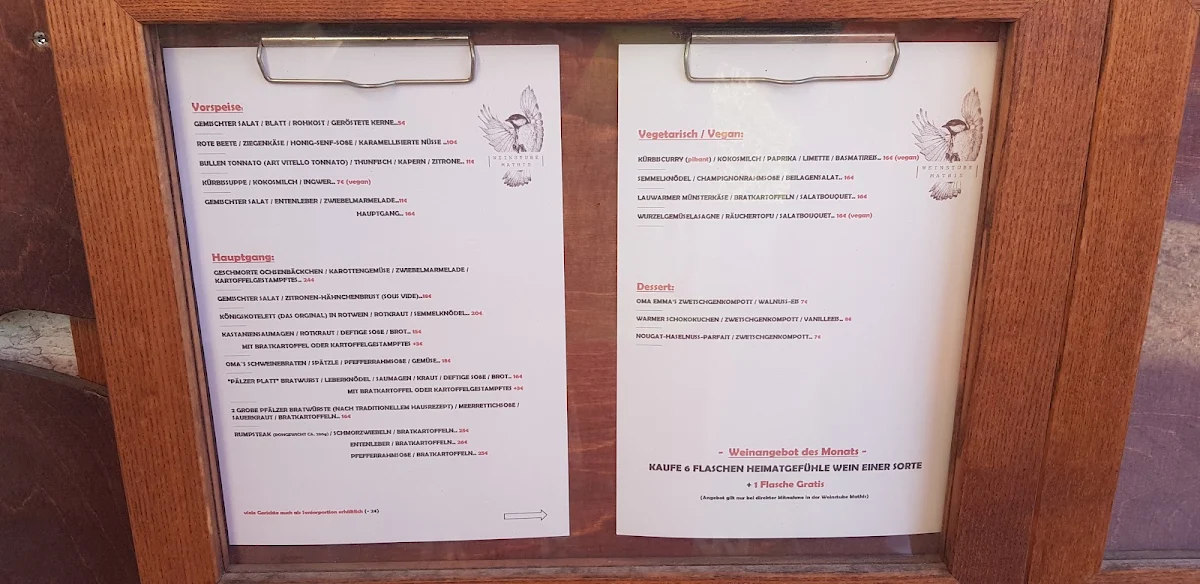 Vorspeise:
GEMISCHTER SALAT / BLATT / ROHKOST / GERÖSTETE KERNE...5€
ROTE BEETE / ZIEGENKÄSE / HONIG-SENF-SOßE / KARAMELLISIERTE NÜSSE ...10€
BULLEN TONNATO (ART VITELLO TONNATO) / THUNFISCH / KAPERN / ZITRONE... 11€
KÜRBISSUPPE / KOKOSMILCH / INGWER... 7€ (vegan)
GEMISCHTER SALAT / ENTENLEBER / ZWIEBELMARMELADE...11€
HAUPTGANG... 16€
WEINSTUBE
MATHIS
Hauptgang:
GESCHMORTE OCHSENBÄCKCHEN / KAROTTENGEMÜSE / ZWIEBELMARMELADE /
KARTOFFELGESTAMPFTES...
GEMISCHTER SALAT / ZITRONEN-HÄHNCHENBRUST (SOUS VIDE)...
KÖNIGSKOTELETT (DAS ORGINAL) IN ROTWEIN / ROTKRAUT / SEMMELKNÖDEL... 20€
KASTANIENSAUMAGEN / ROTKRAUT / DEFTIGE SOßE / BROT...
MIT BRATKARTOFFEL ODER KARTOFFELGESTAMPFTES +3€
OMA´S SCHWEINEBRATEN / SPÄTZLE / PFEFFERRAHMSOßE / GEMÜSE...
"PÄLZER PLATT" BRATWURST / LEBERKNÖDEL / SAUMAGEN / KRAUT / DEFTIGE SOßE / BROT... 16€
MIT BRATKARTOFFEL ODER KARTOFFELGESTAMPFTES +3€
2 GROBE PFÄLZER BRATWÜRSTE (NACH TRADITIONELLEM HAUSREZEPT) / MEERRETTICHSOßE /
SAUERKRAUT / BRATKARTOFFELN... 16€
RUMPSTEAK (ROHGEWICHT CA. ) / SCHMORZWIEBELN / BRATKARTOFFELN...
ENTENLEBER / BRATKARTOFFELN...
PFEFFERRAHMSOßE / BRATKARTOFFELN...
viele Gerichte auch als Seniorportion erhältlich (- 2€)
Vegetarisch / Vegan:
KÜRBISCURRY (pikant) / KOKOSMILCH / PAPRIKA / LIMETTE / BASMATIREIS... 16€ (vegan)
SEMMELKNÖDEL / CHAMPIGNONRAHMSOßE / BEILAGENSALAT... 16€
LAUWARMER MÜNSTERKÄSE / BRATKARTOFFELN / SALATBOUQUET... 16€
WURZELGEMÜSELASAGNE / RÄUCHERTOFU / SALATBOUQUET... 16€ (vegan)
WEINSTUBE
MATHIS
Dessert:
OMA EMMA'S ZWETSCHGENKOMPOTT / WALNUSS-EIS 7€
WARMER SCHOKOKUCHEN / ZWETSCHGENKOMPOTT / VANILLEEIS... 8€
NOUGAT-HASELNUSS-PARFAIT / ZWETSCHGENKOMPOTT... 7€
- Weinangebot des Monats -
KAUFE 6 FLASCHEN HEIMATGEFÜHLE WEIN EINER SORTE
+ 1 Flasche Gratis
(Angebot gilt nur bei direkter Mitnahme in der Weinstube Mathis)